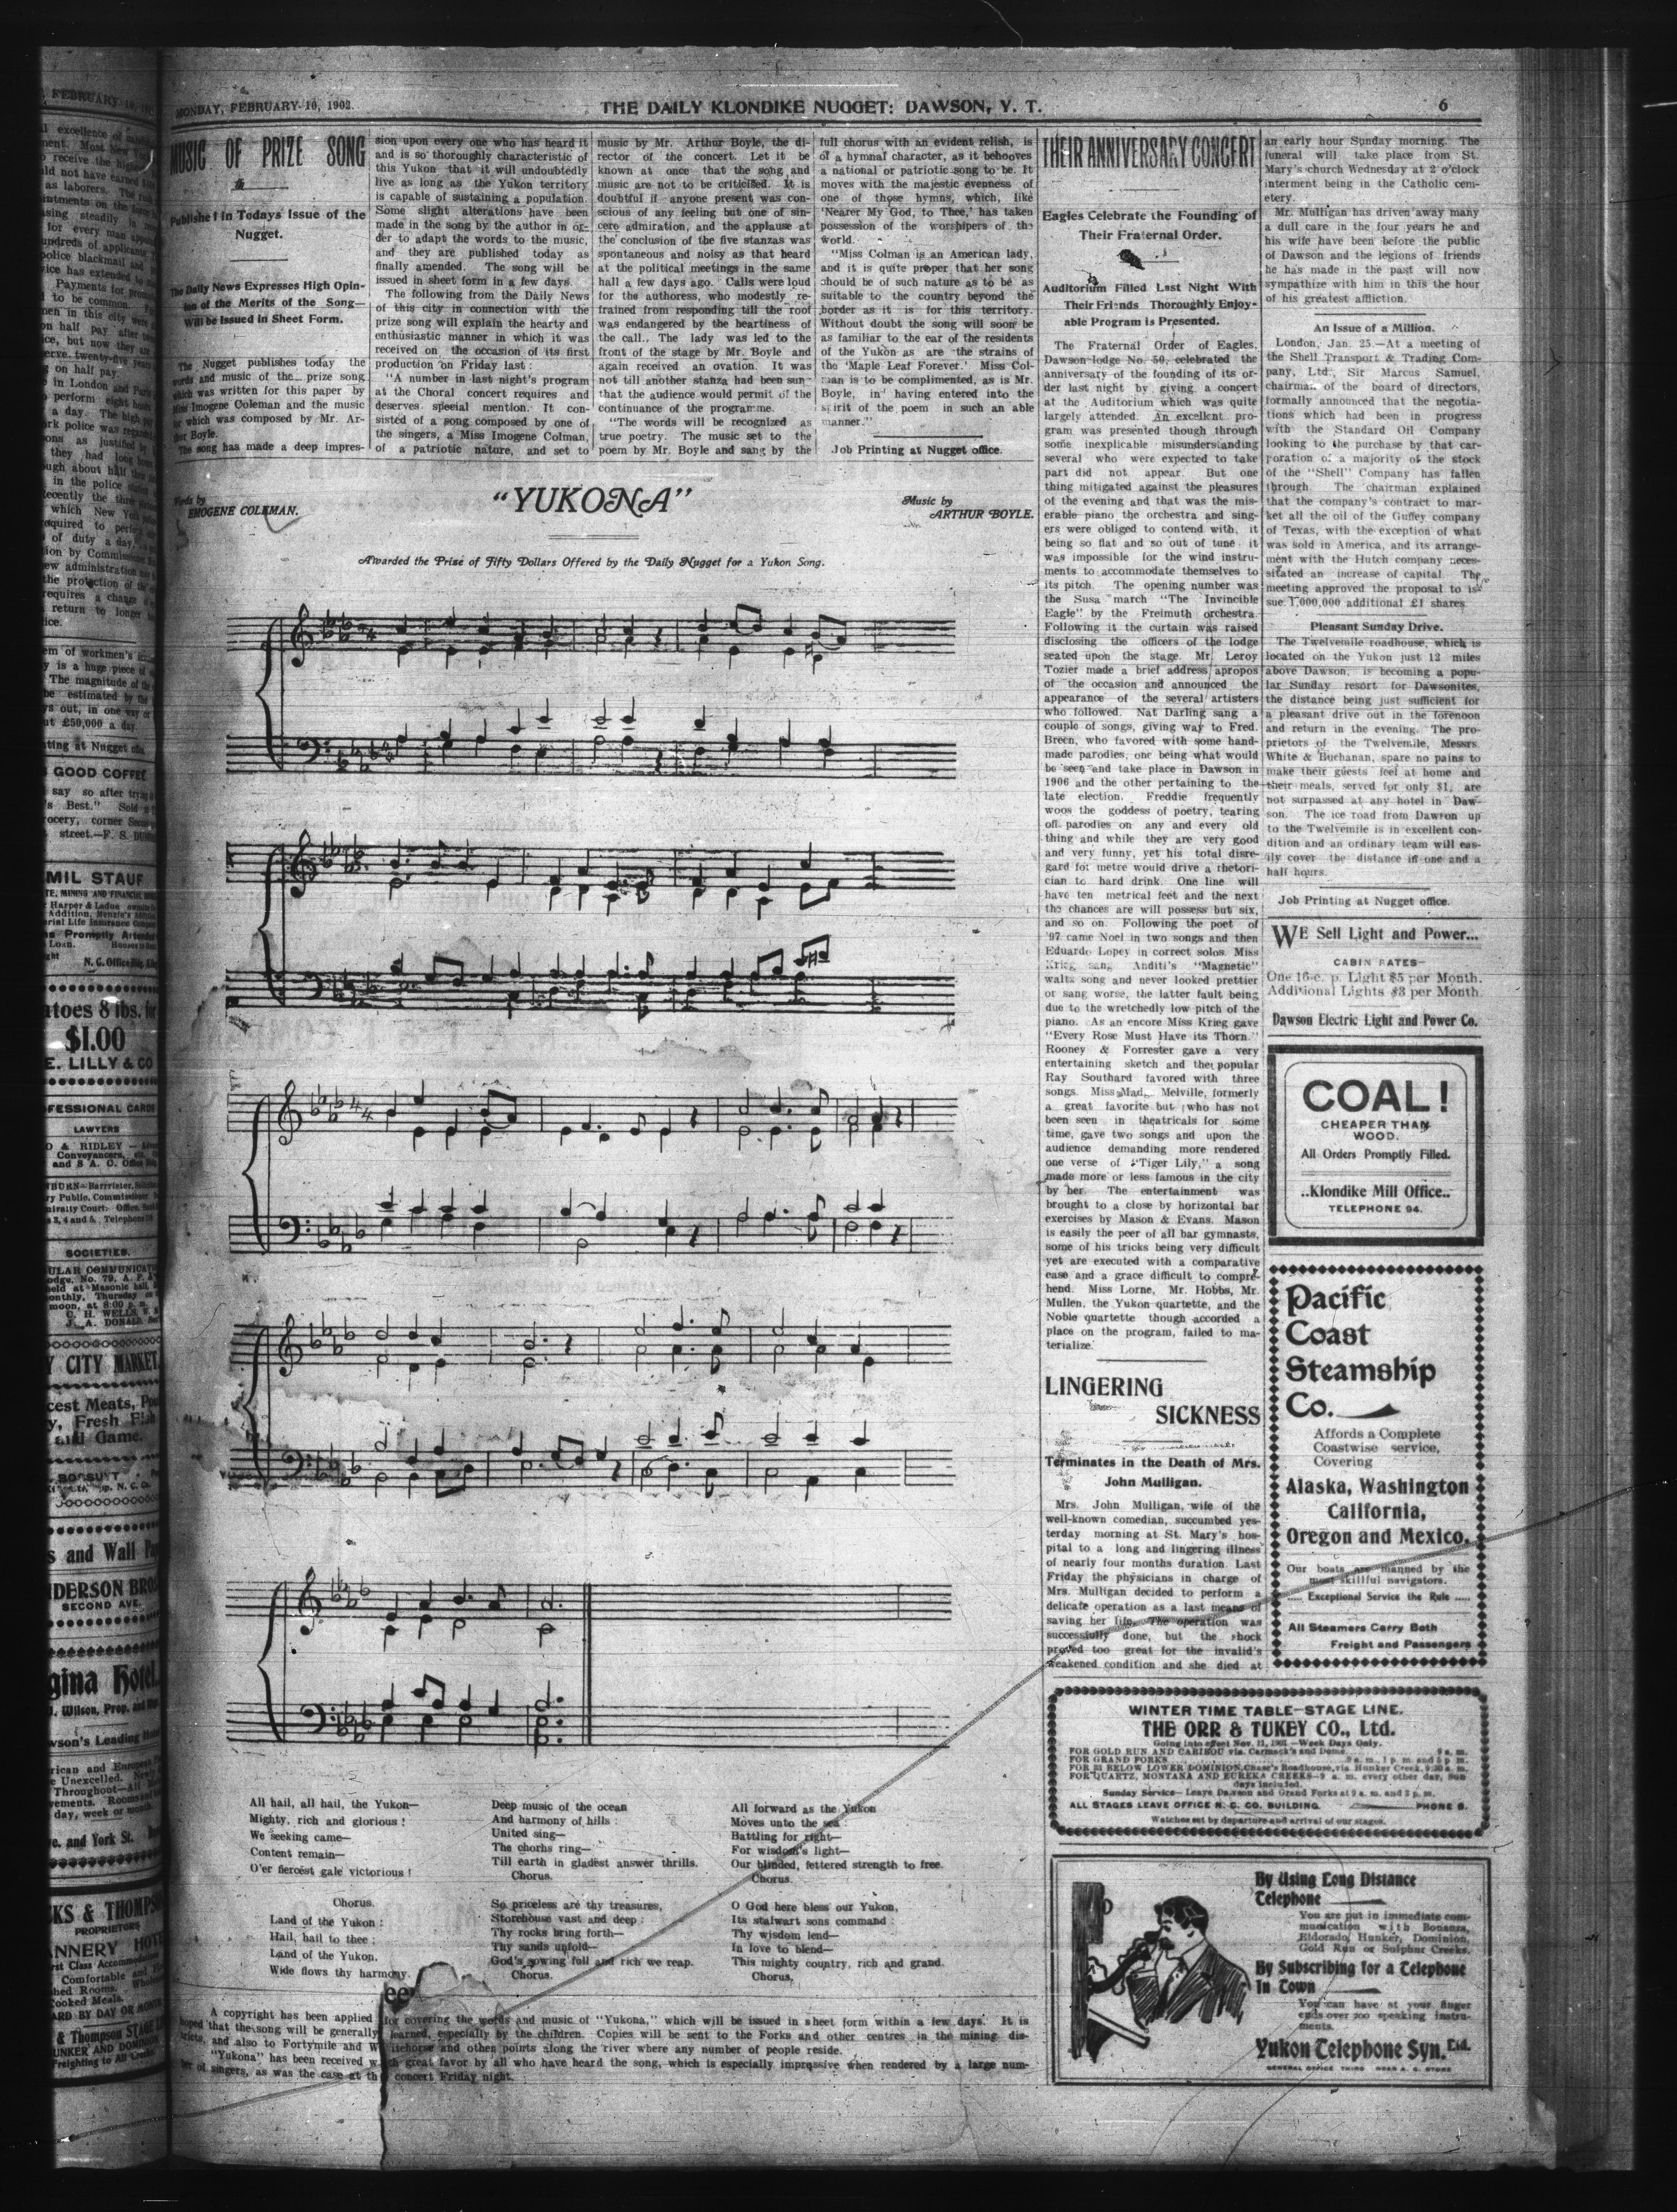 MONDAY, FEBRUARY 10, 1902.
THE DAILY KLONDIKE NUGGET: DAWSON, Y. T.
6
MUSIC OF PRIZE SONG
Published in Todays Issue of the
Nugget.
The Daily News Expresses High Opin-
ion of the Merits of the Song—
Will be Issued in Sheet Form.
The Nugget publishes today the
words and music of the prize song
which was written for this paper by
Miss Imogene Coleman and the music
for which was composed by Mr. Ar-
thur Boyle.
The song has made a deep impres-
sion upon every one who has heard it
and is so thoroughly characteristic of
this Yukon that it will undoubtedly
live as long as the Yukon territory
is capable of sustaining a population.
Some slight alterations have been
made in the song by the author in or-
der to adapt the words to the music,
and they are published today as
finally amended. The song will be
issued in sheet form in a few days.
The following from the Daily News
of this city in connection with the
prize song will explain the hearty and
enthusiastic manner in which it was
received on the occasion of its first
production on Friday last :
"A number in last night's program
at the Choral concert requires and
deserves special mention. It con-
sisted of a song composed by one of
the singers, a Miss Imogene Colman,
of a patriotic nature, and set to
music by Mr. Arthur Boyle, the di-
rector of the concert. Let it be
known at once that the song and
music are not to be criticised. It is
doubtful if anyone present was con-
scious of any feeling but one of sin-
cere admiration, and the applause at
the conclusion of the five stanzas was
spontaneous and noisy as that heard
at the political meetings in the same
hall a few days ago. Calls were loud
for the authoress, who modestly re-
frained from responding till the roof
was endangered by the heartiness of
the call. The lady was led to the
front of the stage by Mr. Boyle and
again received an ovation. It was
not till another stanza had been sun-
that the audience would permit of the
continuance of the programme.
"The words will be recognized as
true poetry. The music set to the
poem by Mr. Boyle and sang by the
full chorus with an evident relish, is
of a hymnal character, as it behooves
a national or patriotic song to be. It
moves with the majestic evenness of
one of those hymns, which, like
'Nearer My God, to Thee,' has taken
possession of the worshipers of the
world.
"Miss Colman is an American lady,
and it is quite proper that her song
should be of such nature as to be as
suitable to the country beyond the
border as it is for this territory.
Without doubt the song will soon be
as familiar to the ear of the residents
of the Yukon as are the strains of
the 'Maple Leaf Forever.' Miss Col-
man is to be complimented, as is Mr.
Boyle, in having entered into the
spirit of the poem in such an able
manner."
Job Printing at Nugget office.
Words by
EMOGENE COLEMAN.
"YUKONA"
Music by
ARTHUR BOYLE.
Awarded the Prize of Fifty Dollars Offered by the Daily Nugget for a Yukon Song.
All hail, all hail, the Yukon—
Mighty, rich and glorious !
We seeking came—
Content remain—
O'er fiercest gale victorious !
Chorus.
Land of the Yukon :
Hail, hail to thee ;
Land of the Yukon,
Wide flows thy harmony.
Deep music of the ocean
And harmony of hills :
United sing—
The chorus ring—
Till earth in gladest answer thrills.
Chorus.
So priceless are thy treasures,
Storehouse vast and deep :
Thy rocks bring forth—
Thy sands unfold—
God's sowing full and rich we reap.
Chorus.
All forward as the Yukon
Moves unto the sea :
Battling for right—
For wisdom's light—
Our blinded, fettered strength to free.
Chorus.
O God here bless our Yukon,
Its stalwart sons command :
Thy wisdom lend—
In love to blend—
This mighty country, rich and grand.
Chorus,
A copyright has been applied for covering the words and music of "Yukona," which will be issued in sheet form within a few days. It is
hoped that the song will be generally learned, especially by the children. Copies will be sent to the Forks and other centres in the mining dis-
tricts, and also to Fortymile and Whitehorse and other points along the river where any number of people reside.
"Yukona" has been received with great favor by all who have heard the song, which is especially impressive when rendered by a large num-
ber of singers, as was the case at the concert Friday night.
THEIR ANNIVERSARY CONCERT
Eagles Celebrate the Founding of
Their Fraternal Order.
Auditorium Filled Last Night With
Their Friends Thoroughly Enjoy-
able Program is Presented.
The Fraternal Order of Eagles,
Dawson lodge No. 50, celebrated the
anniversary of the founding of its or-
der last night by giving a concert
at the Auditorium which was quite
largely attended. An excellent pro-
gram was presented though through
some inexplicable misunderstanding
several who were expected to take
part did not appear. But one
thing mitigated against the pleasures
of the evening and that was the mis-
erable piano the orchestra and sing-
ers were obliged to contend with, it
being so flat and so out of tune it
was impossible for the wind instru-
ments to accommodate themselves to
its pitch. The opening number was
the Susa march "The Invincible
Eagle" by the Freimuth orchestra.
Following it the curtain was raised
disclosing the officers of the lodge
seated upon the stage. Mr. Leroy
Tozier made a brief address apropos
of the occasion and announced the
appearance of the several artisters
who followed. Nat Darling sang a
couple of songs, giving way to Fred.
Breen, who favored with some hand-
made parodies, one being what would
be seen and take place in Dawson in
1906 and the other pertaining to the
late election. Freddie frequently
woos the goddess of poetry, tearing
off parodies on any and every old
thing and while they are very good
and very funny, yet his total disre-
gard for metre would drive a rhetori-
cian to hard drink. One line will
have ten metrical feet and the next
the chances are will possess but six,
and so on. Following the poet of
'97 came Noel in two songs and then
Eduardo Lopey in correct solos. Miss
Krieg sang Anditi's "Magnetic"
waltz song and never looked prettier
or sang worse, the latter fault being
due to the wretchedly low pitch of the
piano. As an encore Miss Krieg gave
"Every Rose Must Have its Thorn."
Rooney & Forrester gave a very
entertaining sketch and the popular
Ray Southard favored with three
songs. Miss Mad. Melville, formerly
a great favorite but who has not
been seen in theatricals for some
time, gave two songs and upon the
audience demanding more rendered
one verse of "Tiger Lily," a song
made more or less famous in the city
by her. The entertainment was
brought to a close by horizontal bar
exercises by Mason & Evans. Mason
is easily the peer of all bar gymnasts,
some of his tricks being very difficult
yet are executed with a comparative
ease and a grace difficult to compre-
hend. Miss Lorne, Mr. Hobbs, Mr.
Mullen, the Yukon quartette, and the
Noble quartette though accorded a
place on the program, failed to ma-
terialize.
LINGERING
SICKNESS
Terminates in the Death of Mrs.
John Mulligan.
Mrs. John Mulligan, wife of the
well-known comedian, succumbed yes-
terday morning at St. Mary's hos-
pital to a long and lingering illness
of nearly four months duration. Last
Friday the physicians in charge of
Mrs. Mulligan decided to perform a
delicate operation as a last means of
saving her life. The operation was
successfully done, but the shock
proved too great for the invalid's
weakened condition and she died at
an early hour Sunday morning. The
funeral will take place from St.
Mary's church Wednesday at 2 o'clock
interment being in the Catholic cem-
etery.
Mr. Mulligan has driven away many
a dull care in the four years he and
his wife have been before the public
of Dawson and the legions of friends
he has made in the past will now
sympathize with him in this the hour
of his greatest affliction.
An Issue of a Million.
London, Jan. 25.—At a meeting of
the Shell Transport & Trading Com-
pany, Ltd., Sir Marcus Samuel,
chairman of the board of directors,
formally announced that the negotia-
tions which had been in progress
with the Standard Oil Company
looking to the purchase by that cor-
poration of a majority of the stock
of the "Shell" Company has fallen
through. The chairman explained
that the company's contract to mar-
ket all the oil of the Guffey company
of Texas, with the exception of what
was sold in America, and its arrange-
ment with the Hutch company neces-
sitated an increase of capital. The
meeting approved the proposal to is-
sue 1,000,000 additional £1 shares.
Pleasant Sunday Drive.
The Twelvemile roadhouse, which is
located on the Yukon just 12 miles
above Dawson, is becoming a popu-
lar Sunday resort for Dawsonites,
the distance being just sufficient for
a pleasant drive out in the forenoon
and return in the evening. The pro-
prietors of the Twelvemile, Messrs.
White & Buchanan, spare no pains to
make their guests feel at home and
their meals, served for only $1, are
not surpassed at any hotel in Daw-
son. The ice road from Dawson up
to the Twelvemile is in excellent con-
dition and an ordinary team will eas-
ily cover the distance in one and a
half hours.
Job Printing at Nugget office.
WE Sell Light and Power...
CABIN RATES—
One 16-c. p. Light $5 per Month.
Additional Lights $3 per Month.
Dawson Electric Light and Power Co.
COAL!
CHEAPER THAN
WOOD.
All Orders Promptly Filled.
..Klondike Mill Office..
TELEPHONE 94.
Pacific
Coast
Steamship
Co.
Affords a Complete
Coastwise service,
Covering
Alaska, Washington
California,
Oregon and Mexico.
Our boats are manned by the
most skillful navigators.
..... Exceptional Service the Rule .....
All Steamers Carry Both
Freight and Passengers
WINTER TIME TABLE—STAGE LINE.
THE ORR & TUKEY CO., Ltd.
Going into effect Nov. 11, 1901—Week Days Only.
FOR GOLD RUN AND CARIBOU via. Carmack's and Dome 9 a. m.
FOR GRAND FORKS 9 a. m., 1 p. m. and 5 p. m.
FOR 33 BELOW LOWER DOMINION, Chase's Roadhouse, via Hunker Creek, 9:30 a. m.
FOR QUARTZ, MONTANA AND EUREKA CREEKS—9 a. m. every other day, Sun
days included.
Sunday Service—Leave Dawson and Grand Forks at 9 a. m. and 3 p. m.
ALL STAGES LEAVE OFFICE N. C. CO. BUILDING. PHONE 8.
Watches set by departure and arrival of our stages.
By Using Long Distance
Telephone
You are put in immediate com-
munication with Bonanza,
Eldorado, Hunker, Dominion,
Gold Run or Sulphur Creeks.
By Subscribing for a Telephone
In Town
You can have at your finger
ends over 200 speaking instru-
ments.
Yukon Telephone Syn. Ltd.
GENERAL OFFICE THIRD NEAR A. C. STORE